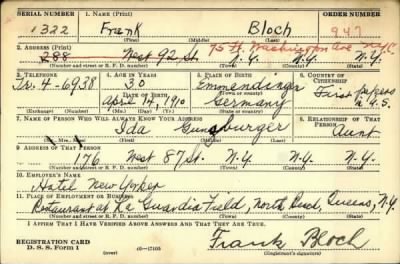 SERIAL NUMBER 1. NAME (Print) ORDER NUMBER
1322 Frank Bloch 947
(First) (Middle) (Last)
2. ADDRESS (Print) 75 Ft. Washington Ave N.Y.C.
288 West 92 St. N.Y. N.Y.
(Number and street or R. F. D. number) (Town) (County) (State)
3. TELEPHONE 4. AGE IN YEARS 5. PLACE OF BIRTH 6. COUNTRY OF CITIZENSHIP
Tr. 4-6938 30 Emmendingen First papers
DATE OF BIRTH (Town or county) in U.S.
April 14, 1910 Germany
(Exchange) (Number) (Mo.) (Day) (Yr.) (State or country)
7. NAME OF PERSON WHO WILL ALWAYS KNOW YOUR ADDRESS 8. RELATIONSHIP OF THAT PERSON
Ida Gunzburger Aunt
(Mr., Mrs., Miss) (First) (Middle) (Last)
9. ADDRESS OF THAT PERSON
176 West 87 St. N.Y. N.Y.
(Number and street or R. F. D. number) (Town) (County) (State)
10. EMPLOYER'S NAME
Hotel New Yorker
11. PLACE OF EMPLOYMENT OR BUSINESS
Restaurant at La Guardia Field, North Beach, Queens, N.Y.
(Number and street or R. F. D. number) (Town) (County) (State)
I AFFIRM THAT I HAVE VERIFIED ABOVE ANSWERS AND THAT THEY ARE TRUE.
REGISTRATION CARD
D. S. S. FORM 1 (over) 16—17105 Frank Bloch
(Registrant's signature)